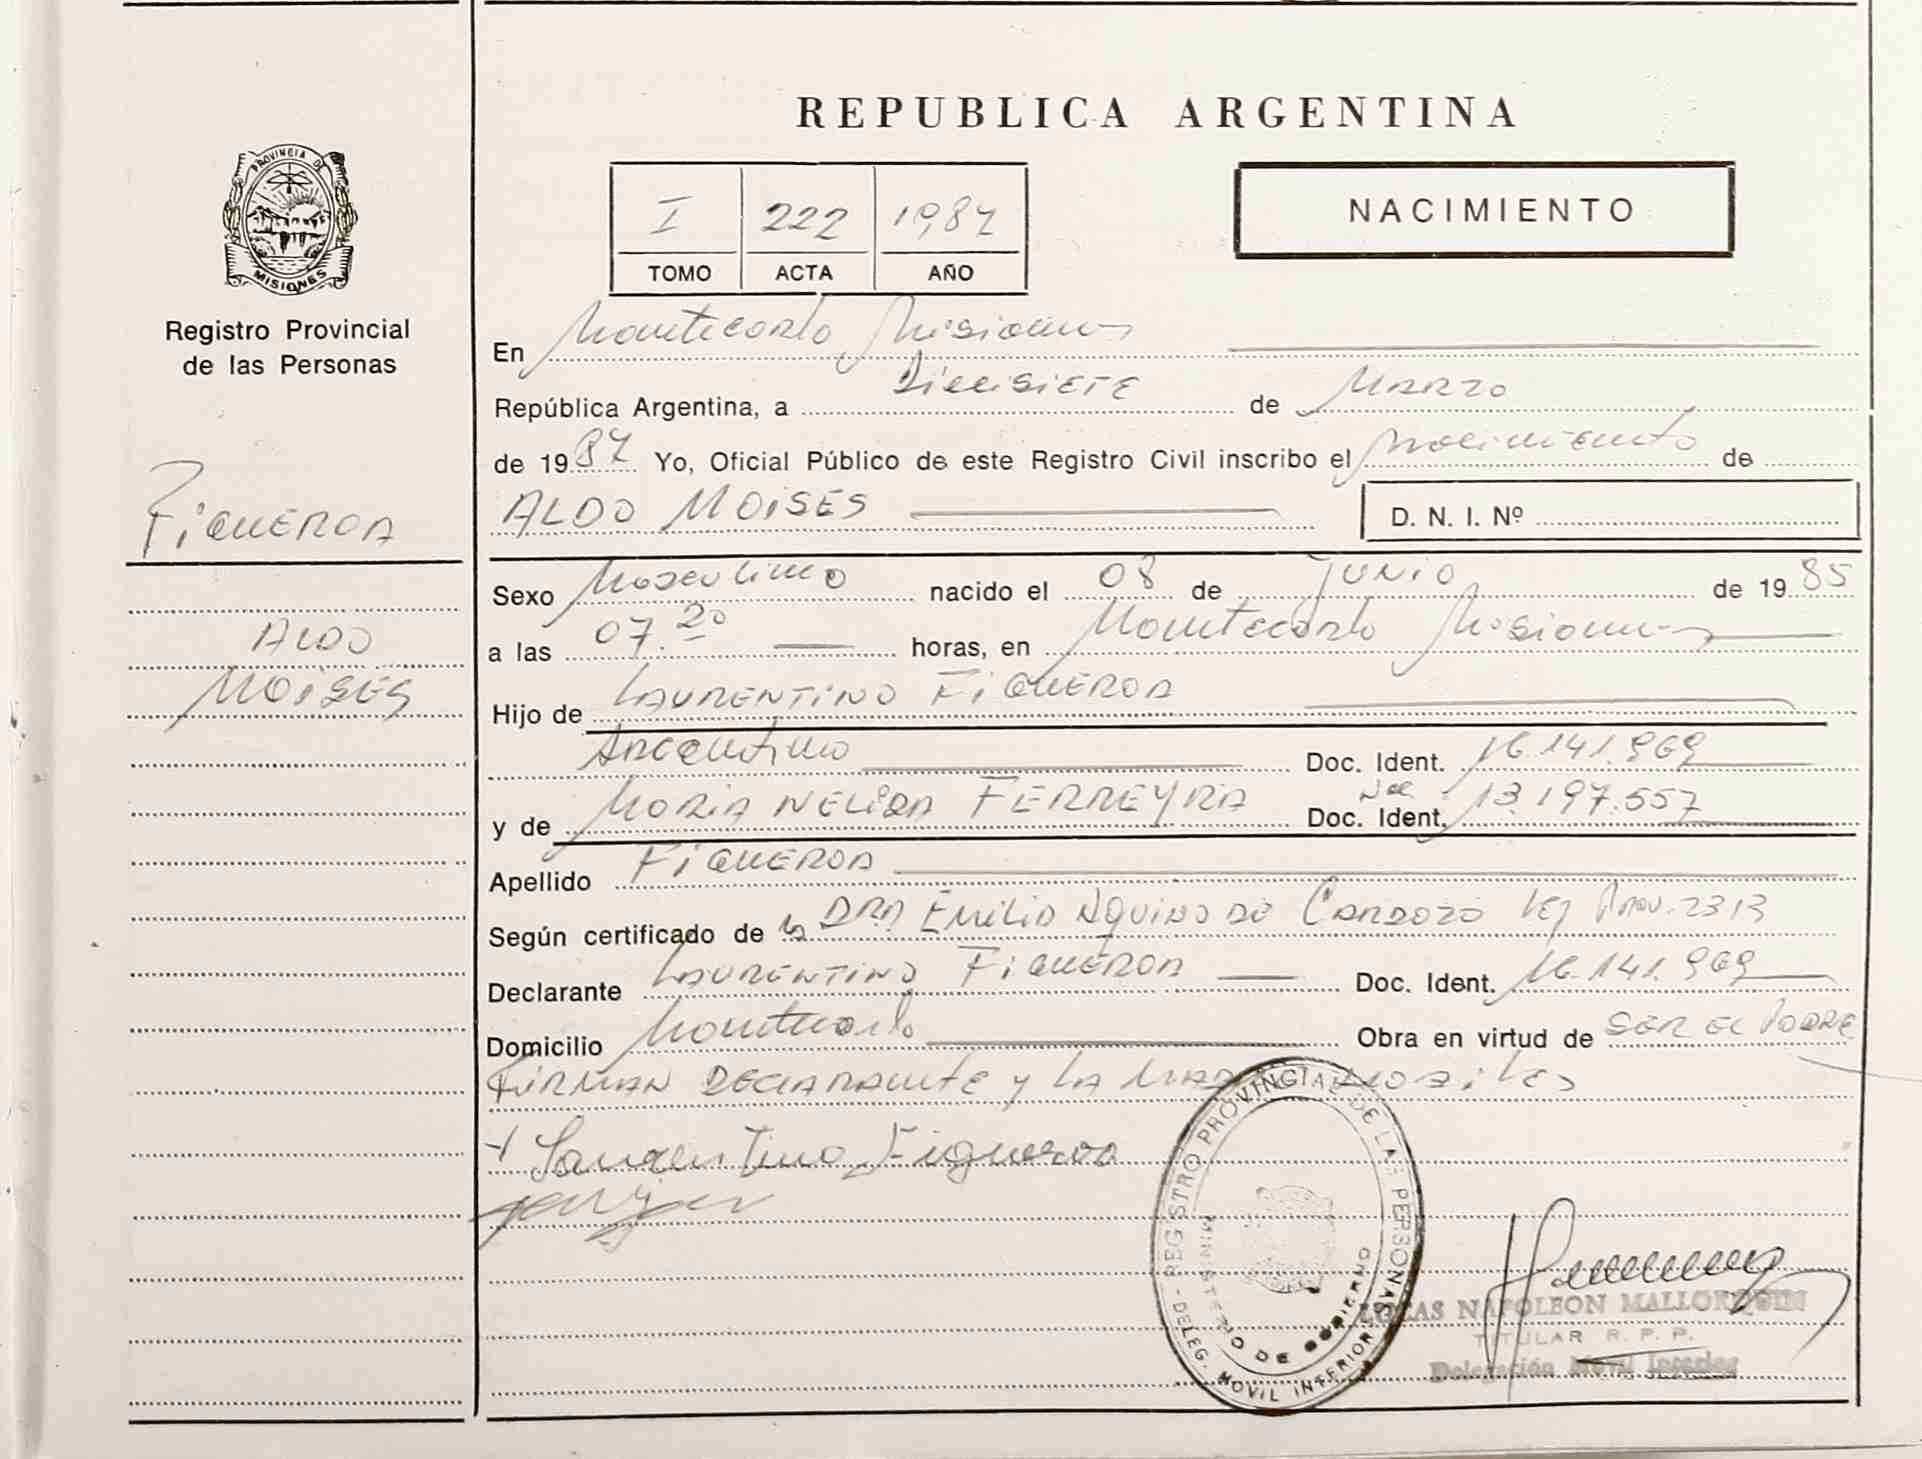 REPUBLICA ARGENTINA
PROVINCIA DE
MISIONES
Registro Provincial
de las Personas
FIGUEROA
ALDO
MOISES
I 222 1987
TOMO ACTA AÑO
NACIMIENTO
En Montecarlo Misiones
República Argentina, a Diecisiete de Marzo
de 1987 Yo, Oficial Público de este Registro Civil inscribo el Nacimiento de
ALDO MOISES D. N. I. Nº
Sexo Masculino nacido el 08 de JUNIO de 1985
a las 07.20 horas, en Montecarlo Misiones
Hijo de LAURENTINO FIGUEROA
Argentino Doc. Ident. 16.141.969
y de MARIA NELIDA FERREYRA Doc. Ident. 13.197.557
Apellido FIGUEROA
Según certificado de la DRA EMILIA AQUINO DE CARDOZO Prov. 2313
Declarante LAURENTINO FIGUEROA Doc. Ident. 16.141.969
Domicilio Montecarlo Obra en virtud de SER EL PADRE
FIRMAN DECLARANTE y LA
Laurentino Figueroa
REGISTRO PROVINCIAL DE LAS PERSONAS - DELEG. MOVIL INTERIOR
MINISTERIO DE GOBIERNO
LUCAS NAPOLEON MALLORQUIN
TITULAR R. P. P.
Delegación Movil Interior